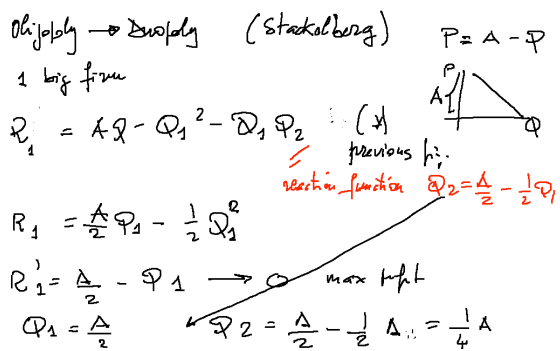 Olijoply → Duoply (Stackelberg) P = A - Q
1 big firm
P
A
Q
R₁ = AQ - Q₁² - Q₁Q₂ (*)
previous
reaction function Q₂ = A/2 - 1/2 Q₁
R₁ = A/2 Q₁ - 1/2 Q₁²
R₁' = A/2 - Q₁ → 0 max
Q₁ = A/2 Q₂ = A/2 - 1/2 A = 1/4 A